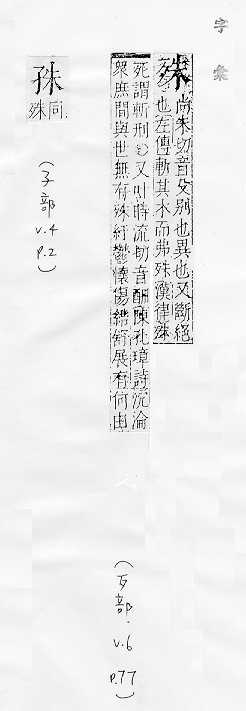 字彚
殊 尚朱切音殳別也異也又斷絕
也左傳斬其木而弗殊漢律殊
死謂斬刑又叶時流切音酬陳孔璋詩沉淪
衆庶間與世無有殊紆鬱懷傷結舒展有何由
(歹部. v.6 p.77)
同.
殊
(子部 v.4 p.2)